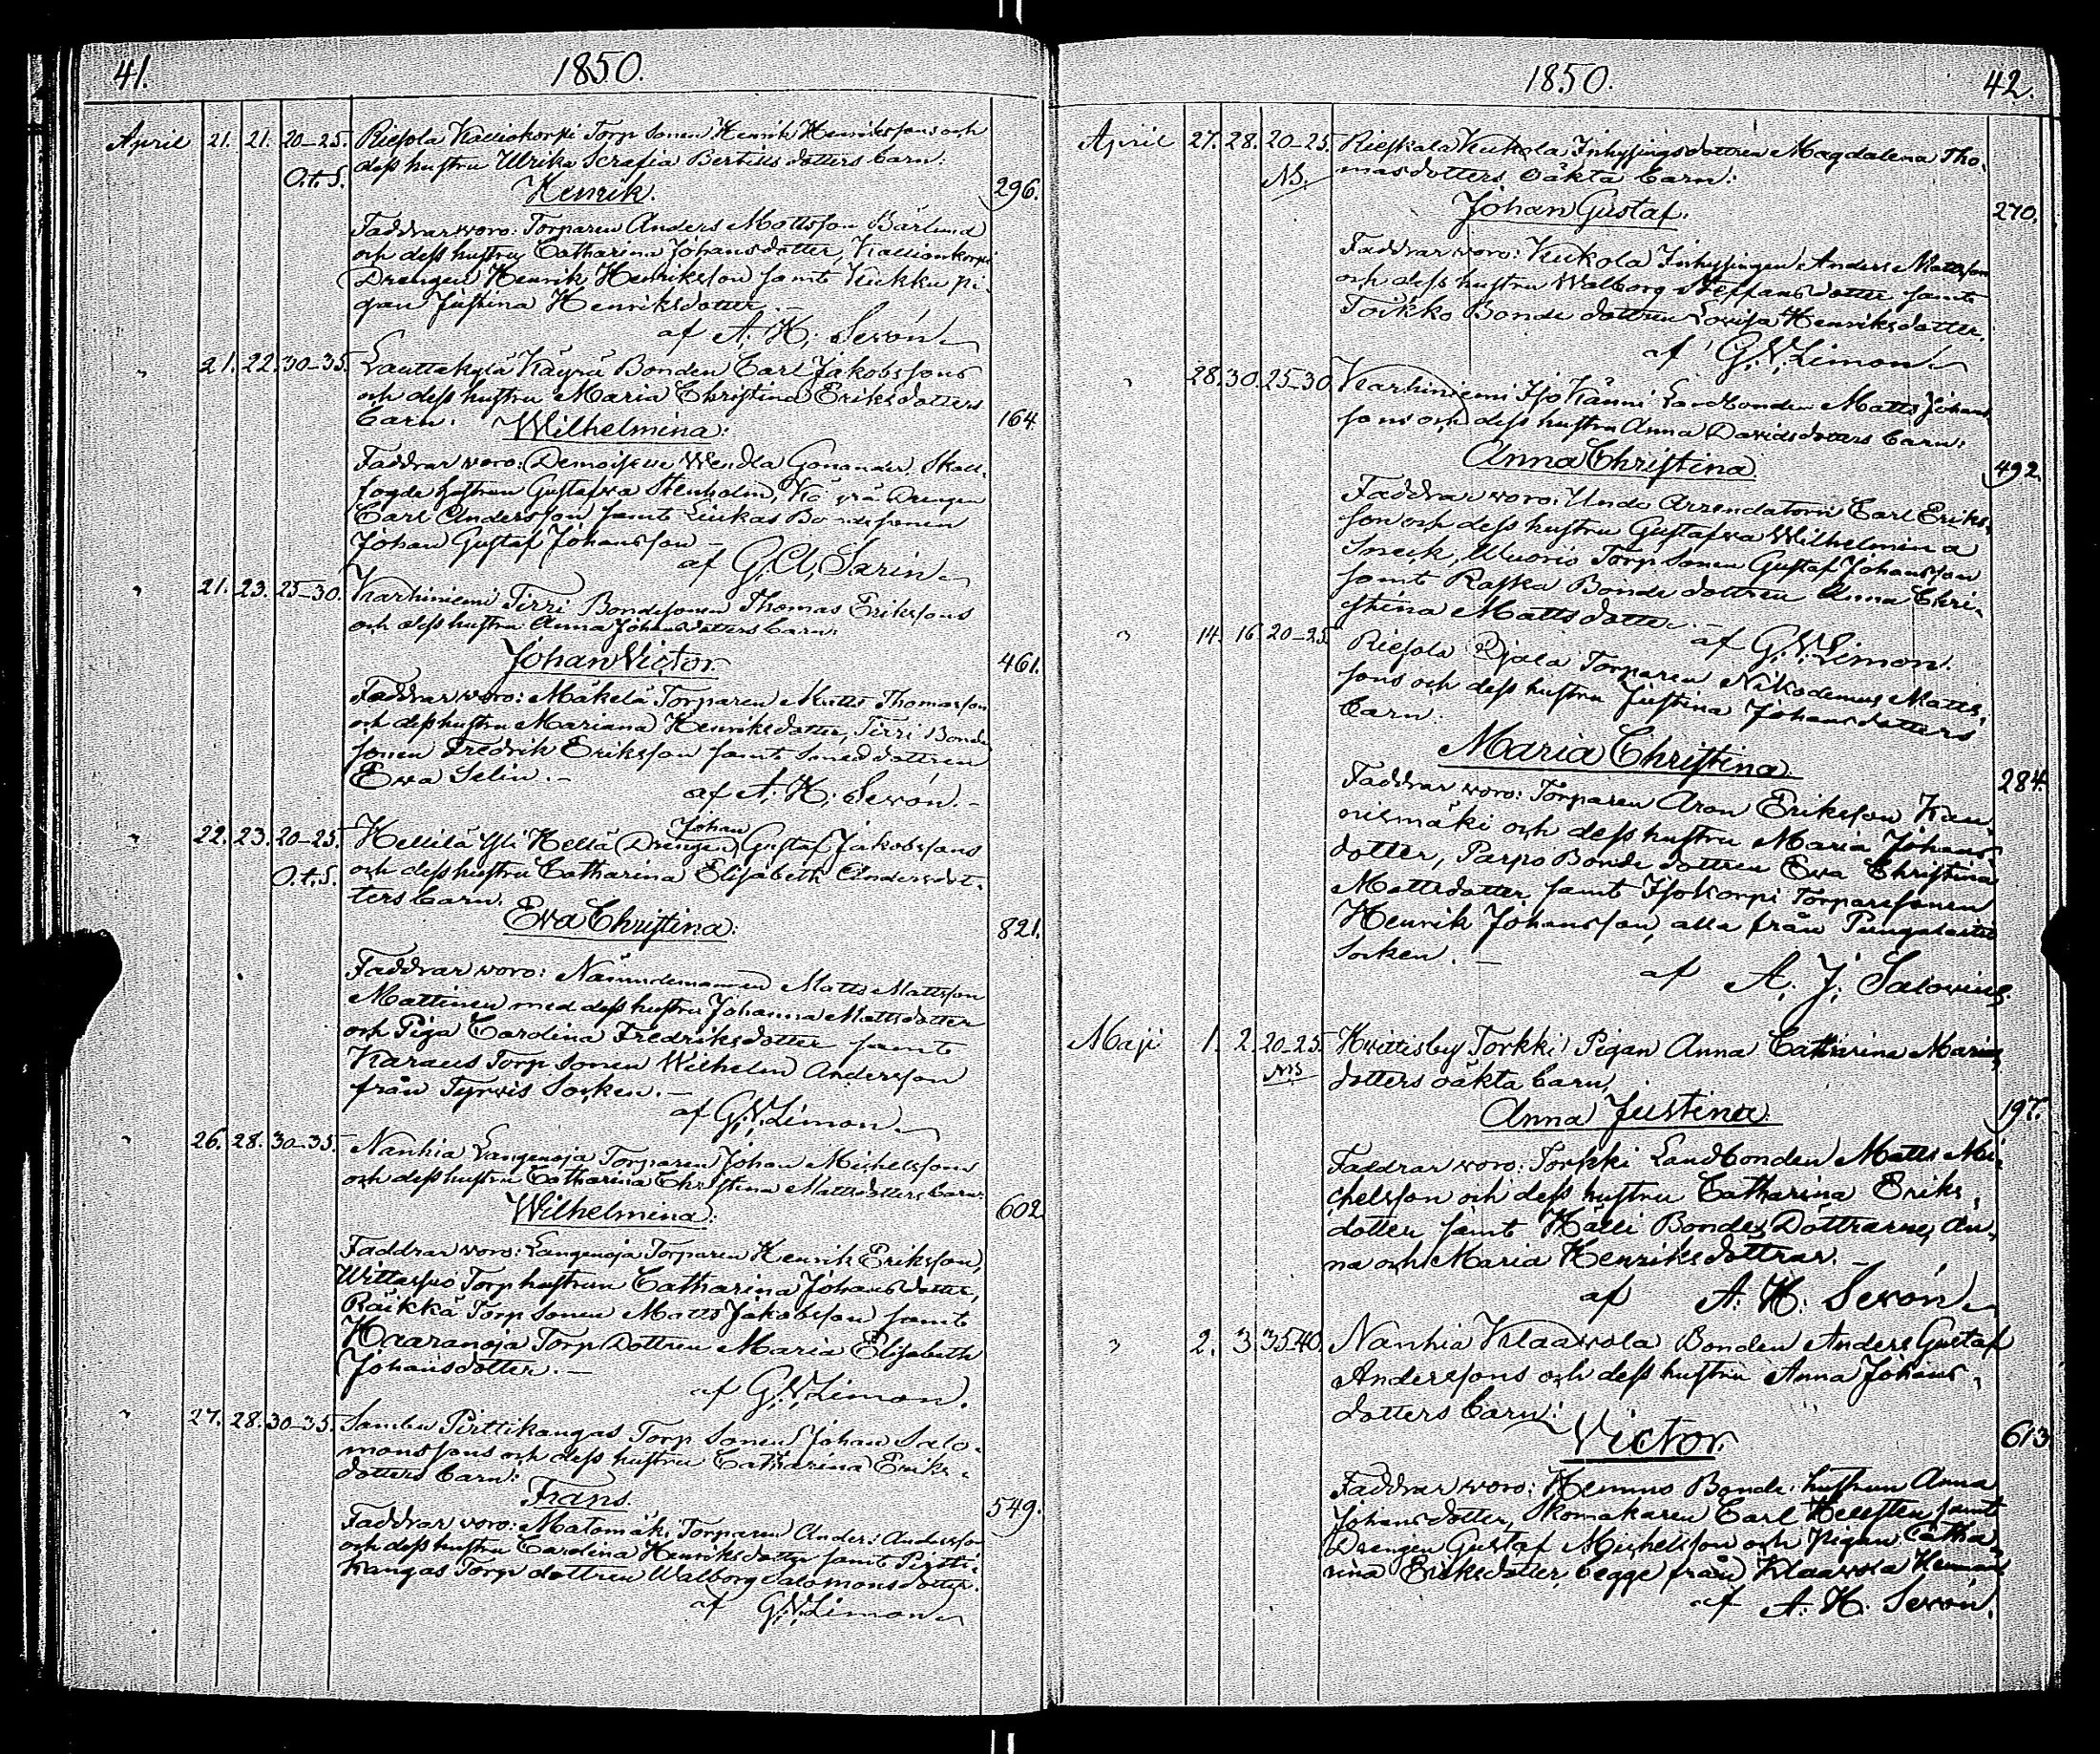 41. 1850.
April 21. 21. 20–25. Riesola Kalliokorpi Torp Sonen Henrik Henrikssons och
O.t.S. dess hustru Ulrika Serafia Bertilsdotters barn:
Henrik. 296.
Faddrar woro: Torparen Anders Mattsson Bärlund
och dess hustru Catharina Johansdotter, Kallionkorpi
Drengen Henrik Henriksson samt Kukku pi-
gan Justina Henriksdotter.
af A. H. Sevón
" 21. 22. 30–35. Lauttakylä Käyrä Bonden Carl Jakobssons
och dess hustru Maria Christina Eriksdotters
barn. Wilhelmina: 164.
Faddrar woro: Demoiselle Wendla Gonander, Skall-
fogde hustrun Gustafva Stenholm, Käyrä Drengen
Carl Andersson samt Liukas Bondesonen
Johan Gustaf Johansson –
af G. A. Sarin
" 21. 23. 25–30. Karhiniemi Tirri Bondesonen Thomas Erikssons
och dess hustru Anna Johansdotters barn:
Johan Victor. 461.
Faddrar woro: Mäkelä Torparen Matts Thomasson
och dess hustru Mariana Henriksdotter, Tirri Bonde
sonen Fredrik Eriksson samt Smeddottren
Ewa Selin. –
af A. H. Sevón. –
" 22. 23. 20–25. Hellilä Yli Hellä Drengen Johan Gustaf Jakobssons
O.t.S. och dess hustru Catharina Elisabeth Andersdot-
ters barn.
Eva Christina: 821.
Faddrar woro: Nämndemannen Matts Mattsson
Mattinen med dess hustru Johanna Mattsdotter
och Piga Carolina Fredriksdotter samt
Karaus Torp sonen Wilhelm Andersson
från Tyrvis Socken. –
af G. W. Limon.
" 26. 28. 30–35. Nanhia Langenoja Torparen Johan Michelssons
och dess hustru Catharina Christina Mattsdotters barn
Wilhelmina: 602
Faddrar woro: Langenoja Torparen Henrik Eriksson,
Wittarsuo Torp hustrun Catharina Johansdotter,
Räikkä Torp Sonen Matts Jakobsson samt
Haaranoja Torp Dottren Maria Elisabeth
Johansdotter. –
af G. W. Limon.
" 27. 28. 30–35. Sambu Pirttikangas Torp Sonen Johan Salo-
monssons och dess hustru Catharina Eriks-
dotters barn:
Frans. 549.
Faddrar woro: Matomäki Torparen Anders Andersson
och dess hustru Carolina Henriksdotter samt Pirtti-
kangas Torp dottren Walborg Salomonsdotter.
af G. W. Limon
1850. 42.
April 27. 28. 20–25. Rieskala Kukola Inhysingsdottren Magdalena Tho-
NB. masdotters oäkta barn:
Johan Gustaf. 270.
Faddrar woro: Kukola Inhysingen Anders Mattsson
och dess hustru Walborg Steffansdotter samt
Toikko Bonde dottren Lovisa Henriksdotter.
af G. W. Limon
" 28. 30. 25–30. Karhiniemi Iso Känni Landbonden Matts Johans-
sons och dess hustru Anna Davidsdotters barn:
Anna Christina 492.
Faddrar woro: Undo Arrendatorn Carl Eriks-
son och dess hustru Gustafva Wilhelmina
Sneck, Wuorio Torp Sonen Gustaf Johansson
samt Raska Bonde dottren Anna Chri-
stina Mattsdotter. –
af G. W. Limon.
" 14. 16. 20–25. Riesola Ojala Torparen Nikodemus Matts-
sons och dess hustru Justina Johansdotters
barn.
Maria Christina. 284.
Faddrar woro: Torparen Aron Eriksson Kau-
nismäki och dess hustru Maria Johans-
dotter, Parpo Bonde dottren Ewa Christina
Mattsdotter samt Isokorpi Torparesonen
Henrik Johansson, alla från Pungalaitio
Socken. –
af A. J. Salovius.
Maji 1. 2. 20–25. Hvittisby Torkki Pigan Anna Catharina Marias
NB dotters oäkta barn.
Anna Justina. 197.
Faddrar woro: Torkki Landbonden Matts Mi-
chelsson och dess hustru Catharina Eriks-
dotter samt Hälli Bondes Döttrarne, An-
na och Maria Henriksdöttrar. –
af A. H. Sevón
" 2. 3 35–40. Nanhia Klaavola Bonden Anders Gustaf
Anderssons och dess hustru Anna Johans-
dotters barn:
Victor. 613.
Faddrar woro: Hemmo Bonde hustrun Anna
Johansdotter, Skomakaren Carl Hellsten samt
Drengen Gustaf Michelsson och Pigan Catha-
rina Eriksdotter, begge från Klaavola Hemman
af A. H. Sevón.